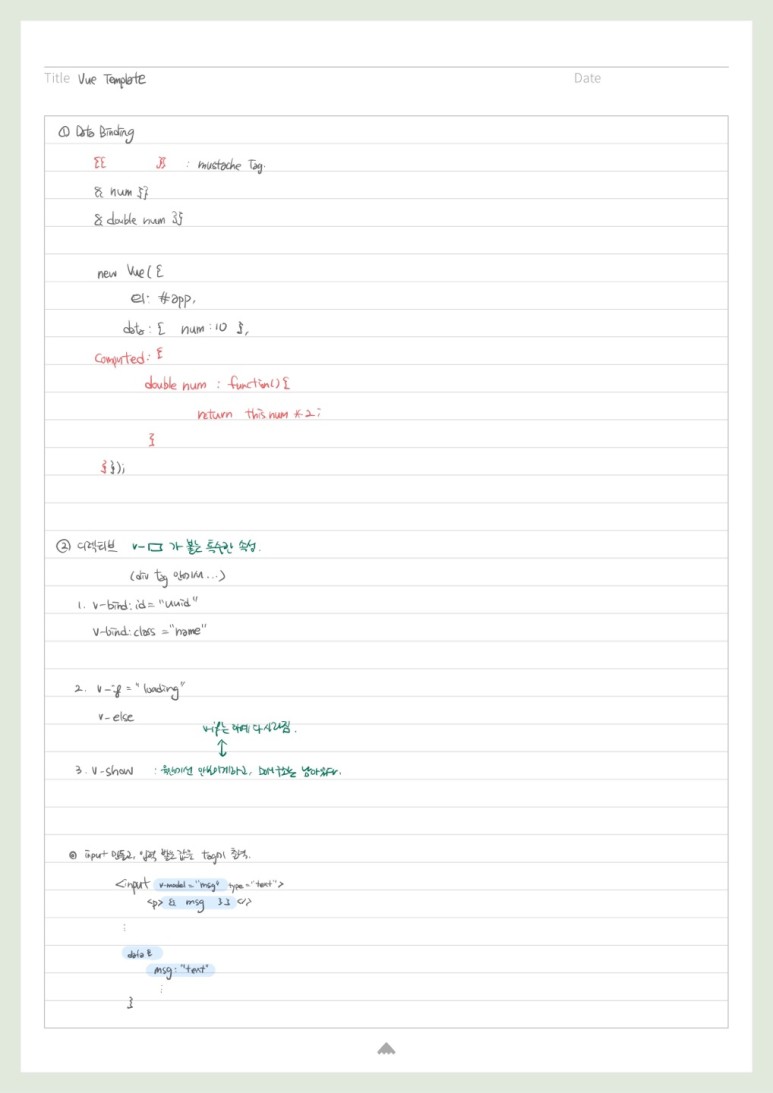 Title Vue Template Date
① Data Binding
{{ }} : mustache Tag.
{{ num }}
{{ double num }}
new Vue({
el: #app,
data: { num:10 },
Computed: {
double num : function(){
return this.num *2;
}
}});
② 디렉티브 v-▭ 가 붙는 특수한 속성.
(div tag 안에서...)
1. v-bind:id="uuid"
v-bind:class="name"
2. v-if="loading"
v-else
v-if는 아예 다시그림.
↕
3. v-show : 화면에선 안보이게하고, 남아있다.
input 만들고, 입력 받는 값을 tag에 출력.
<input v-model="msg" type="text">
<p> {{ msg }} </>
:
data {
msg: "text"
:
}